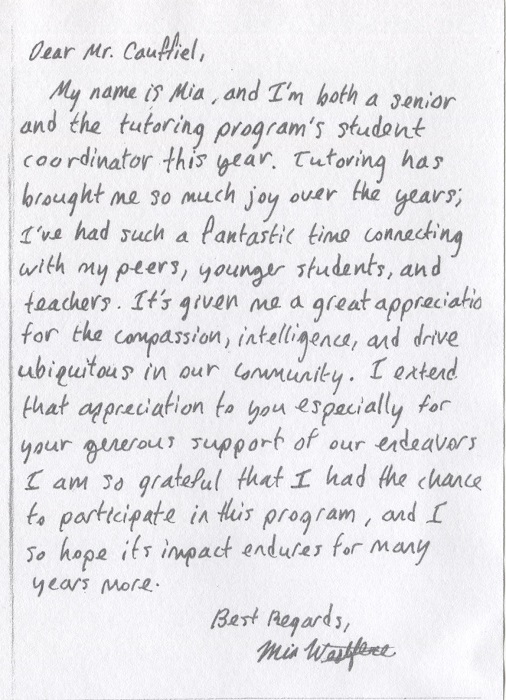 Dear Mr. Cauffiel,
My name is Mia, and I'm both a senior
and the tutoring program's student
coordinator this year. Tutoring has
brought me so much joy over the years;
I've had such a fantastic time connecting
with my peers, younger students, and
teachers. It's given me a great appreciatio
for the compassion, intelligence, and drive
ubiquitous in our community. I extend
that appreciation to you especially for
your generous support of our endeavors
I am so grateful that I had the chance
to participate in this program, and I
so hope its impact endures for many
years more.
Best Regards,
Mia